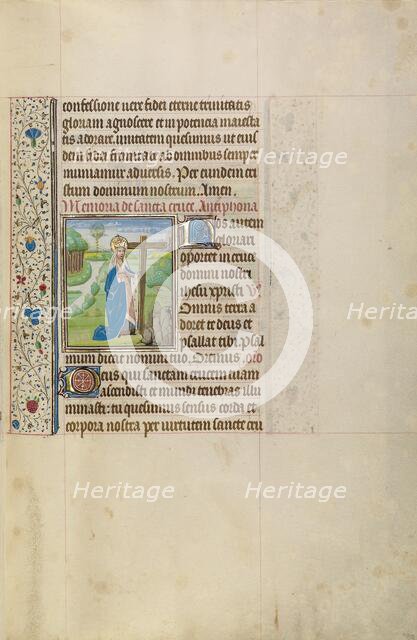 confessione vere fidei eterne trinitatis
gloriam agnoscere et in potencia maiesta
tis adorare unitatem quesumus ut eius
dem fidei firmitate ab omnibus semper
muniamur adversis. Per eundem cri
stum dominum nostrum. Amen.
Memoria de sancta cruce. Antiphona
Nos autem
gloriari
oportet in cruce
domini nostri
ihesu xpristi V
Omnis terra a
doret te deus et
psallat tibi. Psal
mum dicat nomini tuo, Oremus. oro
Deus qui sanctam crucem tuam
ascendisti et mundi tenebras illu
minasti: tu quesumus sensus corda et
corpora nostra per virtutem sancte cru
Heritage
Heritage
Heritage
Heritage
Heritage
Heritage